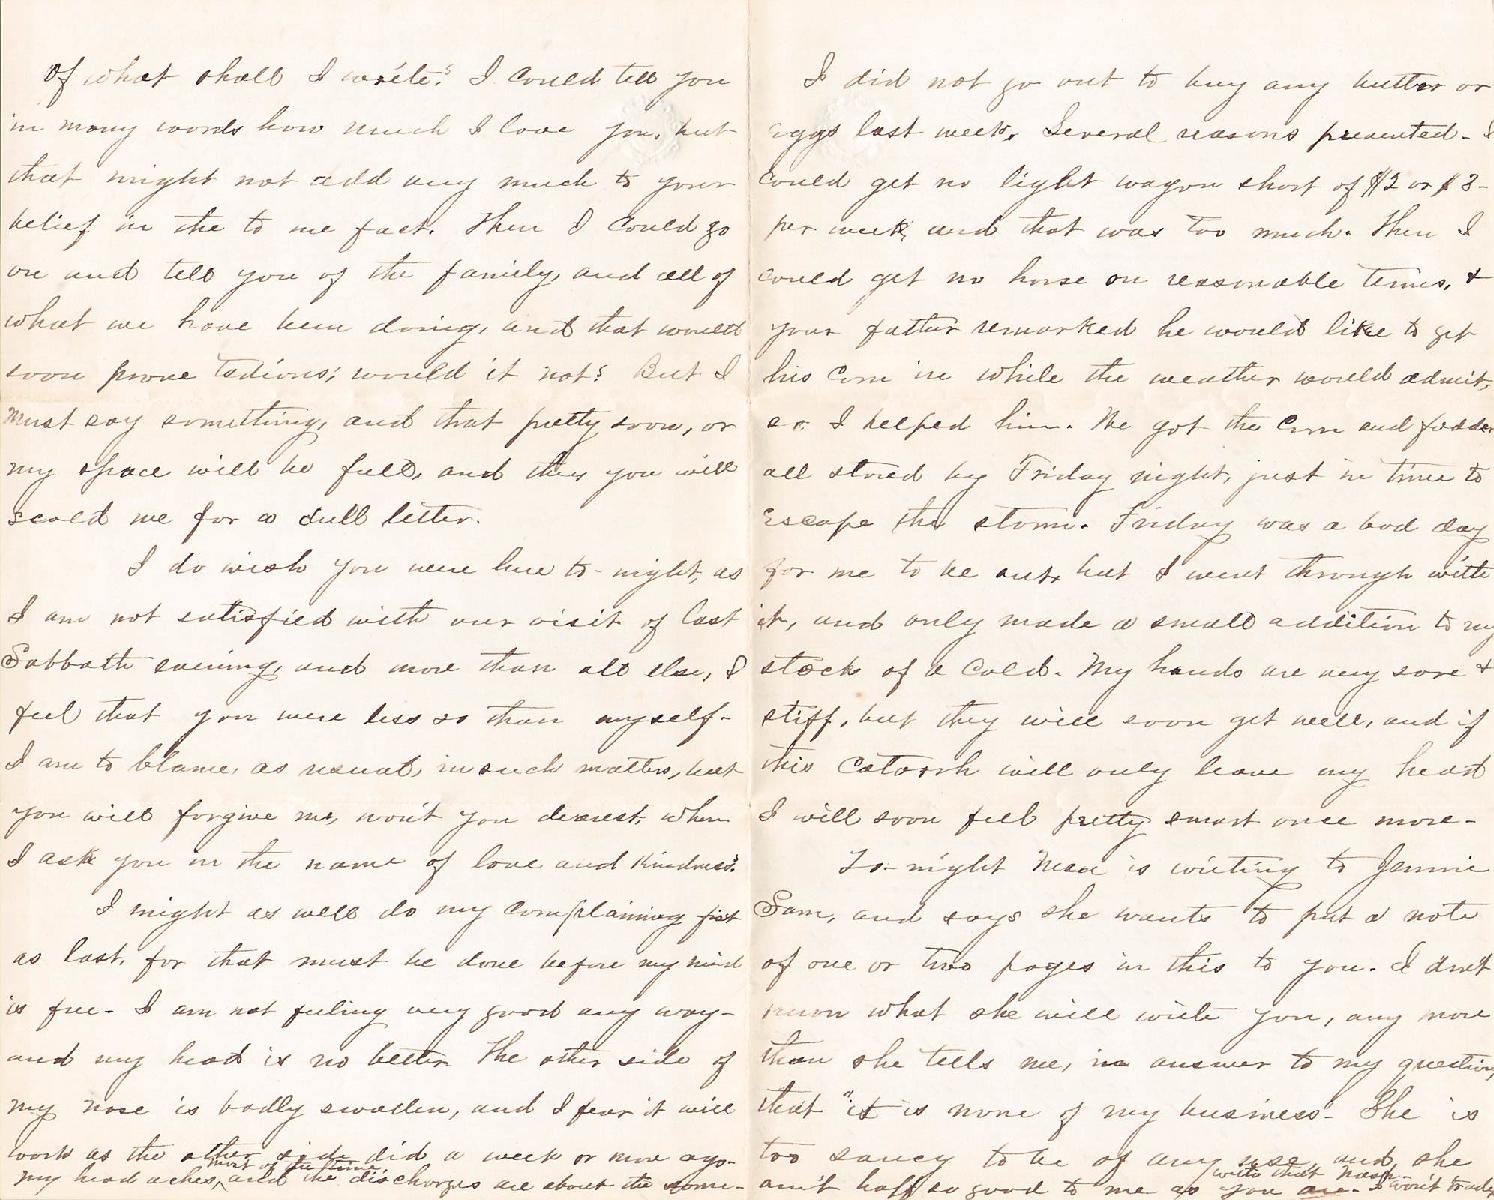 Of what shall I write? I could tell you
in many words how much I love you, but
that might not add any much to your
belief in the to me fact. Then I could go
on and tell you of the family, and all of
what we have been doing, and that would
soon prove tedious; would it not? But I
must say something, and that pretty soon, or
my space will be full, and then you will
scold me for a dull letter.
I do wish you were here to-night, as
I am not satisfied with our visit of last
Sabbath evening, and more than all else, I
feel that you were less so than myself-
I am to blame, as usual, in such matters, but
you will forgive me, won't you dearest, when
I ask you in the name of love and kindness?
I might as well do my complaining first
as last, for that must be done before my mind
is free- I am not feeling very good any way-
and my head is no better. The other side of
my nose is badly swollen, and I fear it will
work as the other side did a week or more ago-
my head aches, most of the time, and the discharges are about the same-
I did not go out to buy any butter or
eggs last week, Several reasons prevented- I
could get no light wagon short of $2 or $3-
per week, and that was too much. Then I
could get no horse on reasonable terms, &
your father remarked he would like to get
his corn in while the weather would admit,
so I helped him. We got the corn and fodder
all stored by Friday night, just in time to
escape the storm. Friday was a bad day
for me to be out, but I went through with
it, and only made a small addition to my
stock of a cold. My hands are very sore &
stiff, but they will soon get well, and if
this Catarrh will only leave my head
I will soon feel pretty smart once more-
To-night is writing to Jennie
Sam, and says she wants to put a note
of one or two pages in this to you. I don't
know what she will write you, any more
than she tells me, in answer to my question,
that "it is none of my business- She is
too saucy to be of any use and she
ain't half so good to me as you write that I won't